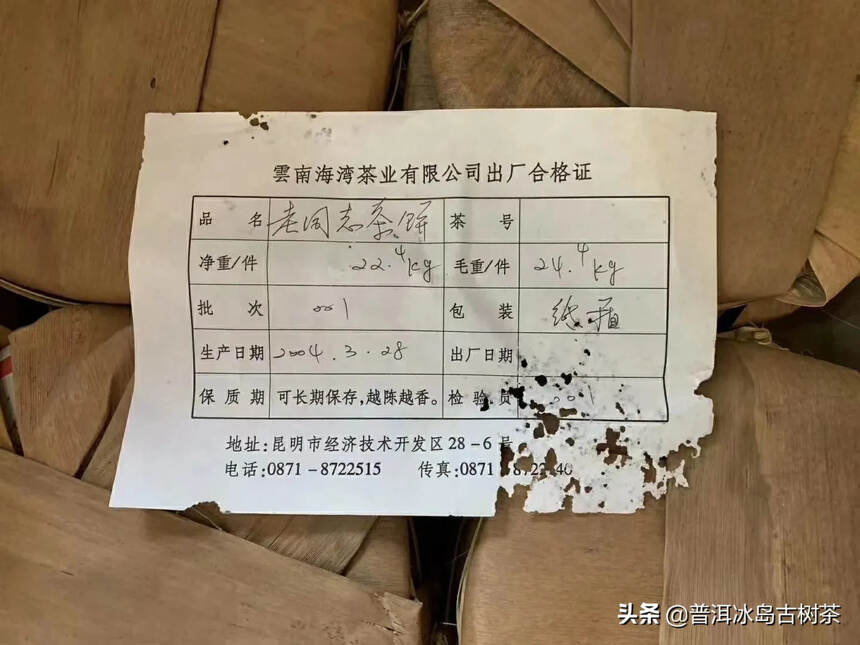 雲南海湾茶业有限公司出厂合格证
品 名 老同志茶饼 茶 号
净重/件 22.4kg 毛重/件 24.4kg
批 次 001 包 装 纸箱
生产日期 2004.3.28 出厂日期
保 质 期 可长期保存,越陈越香。 检 验 员 001
地址:昆明市经济技术开发区28-6号
电话:0871-8722515 传真:0871
头条 @普洱冰岛古树茶